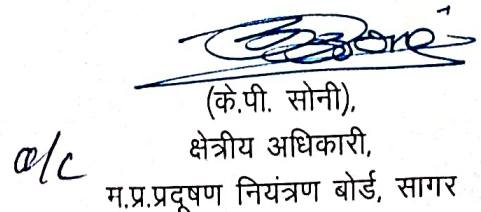 (के.पी. सोनी),
क्षेत्रीय अधिकारी,
o/c
म.प्र.प्रदूषण नियंत्रण बोर्ड, सागर